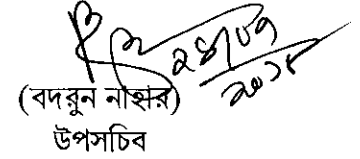 ২৪/৭/
২০১৮
(বদরুন নাহার)
উপসচিব